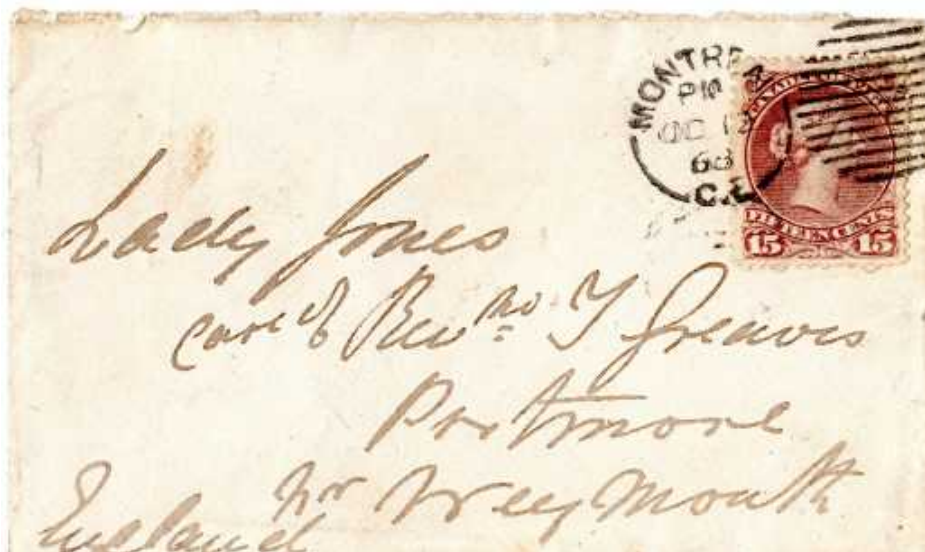 MONTREA
PM
OC 1
68
C.E
FIFTEEN CENTS
15 15
Lady Jones
care of Revd T Greaves
Portmore
nr Weymouth
England